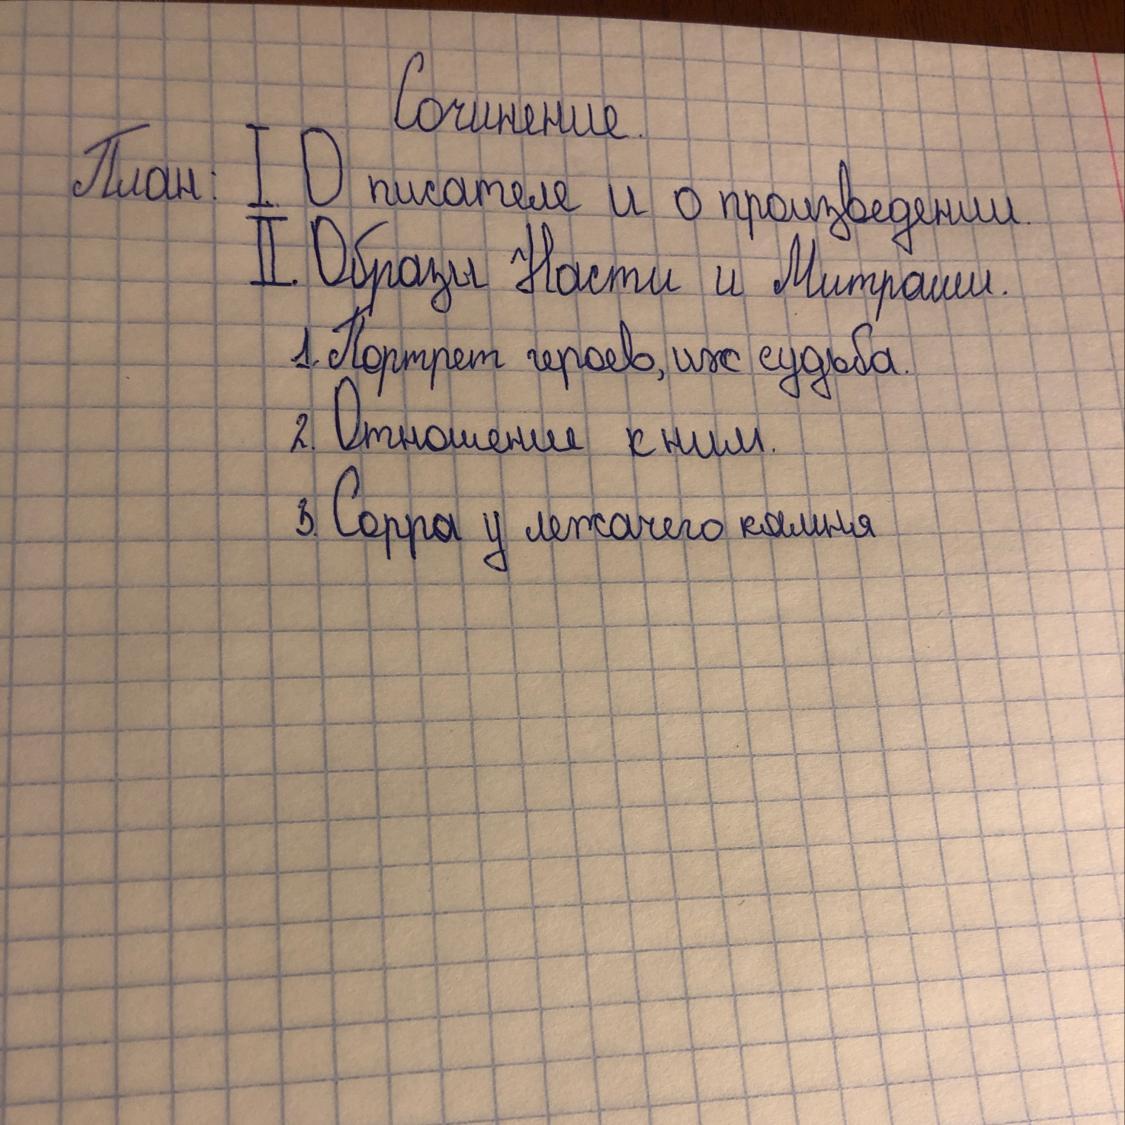 Сочинение.
План: I. О писателе и о произведении.
II. Образы Насти и Митраши.
1. Портрет героев, их судьба.
2. Отношение к ним.
3. Сорра у лежачего камня